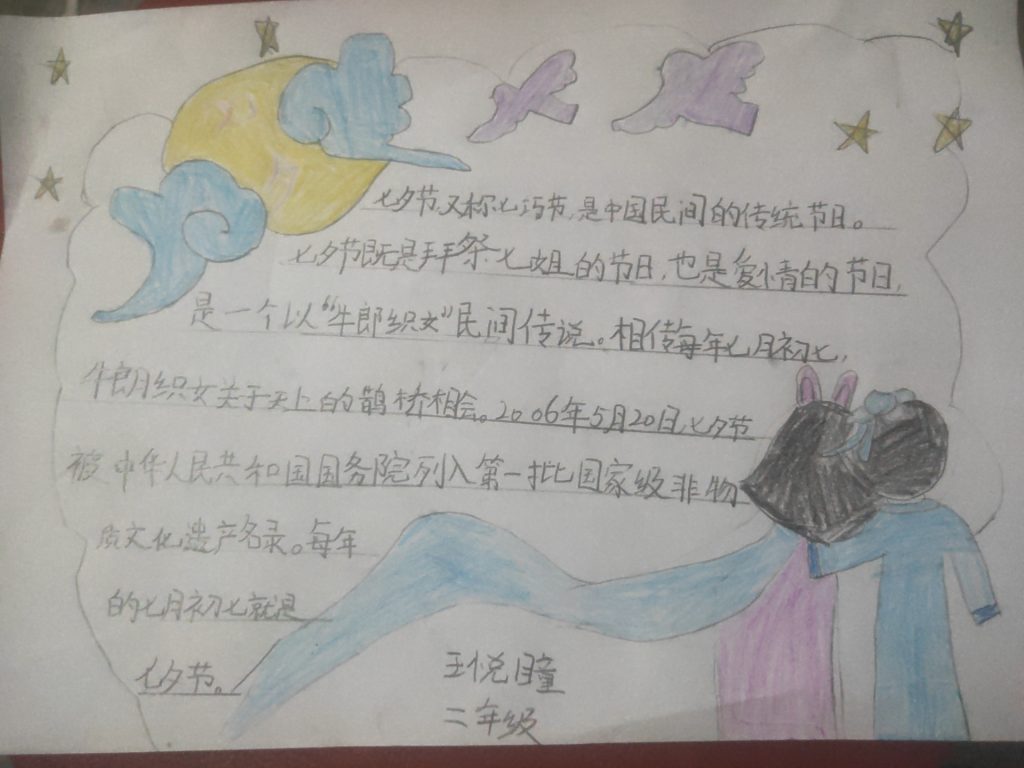 七夕节,又称七巧节,是中国民间的传统节日。
七夕节既是拜祭七姐的节日,也是爱情的节日,
是一个以“牛郎织女”民间传说。相传每年七月初七,
牛郎织女关于天上的鹊桥相会。2006年5月20日,七夕节
被中华人民共和国国务院列入第一批国家级非物
质文化遗产名录。每年
的七月初七就是
七夕节。
王悦瞳
二年级